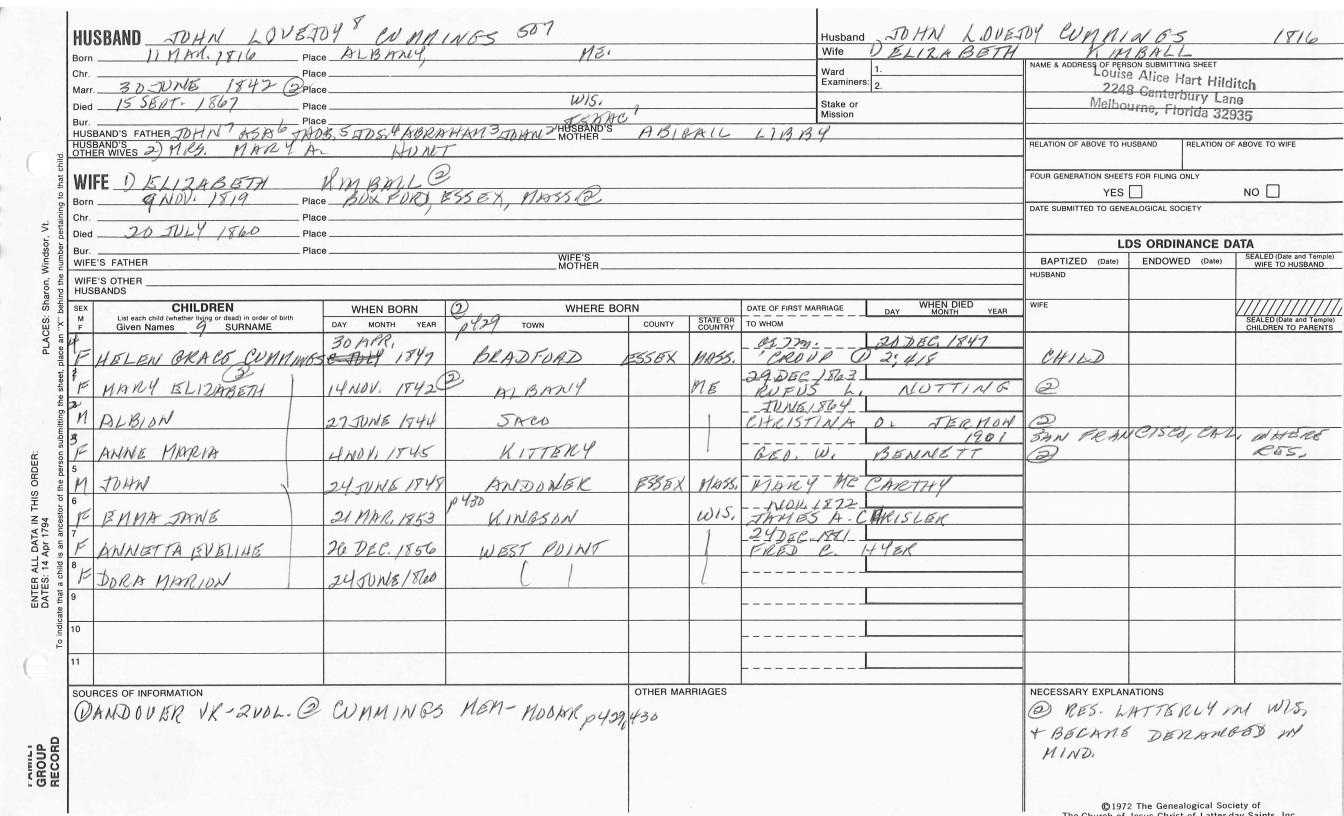 HUSBAND JOHN LOVEJOY 8 CUMMINGS 507
Born 11 MAR. 1816 Place ALBANY, ME.
Chr. Place
Marr. 30 JUNE 1842 ② Place
Died 15 SEPT. 1867 Place WIS.
Bur. Place ISAAC 1
HUSBAND'S FATHER JOHN 7 ASA 6 5 JOS. 4 ABRAHAM 3 JOHN 2 HUSBAND'S MOTHER ABIGAIL LIBBY
HUSBAND'S OTHER WIVES 2) MRS. MARY A. HUNT
WIFE 1) ELIZABETH KIMBALL ②
Born 9 NOV. 1819 Place BOXFORD, ESSEX, MASS ②
Chr. Place
Died 20 JULY 1860 Place
Bur. Place
WIFE'S FATHER WIFE'S MOTHER
WIFE'S OTHER HUSBANDS
Husband JOHN LOVEJOY CUMMINGS 1816
Wife 1) ELIZABETH KIMBALL
Ward Examiners: 1. 2.
Stake or Mission
NAME & ADDRESS OF PERSON SUBMITTING SHEET
Louise Alice Hart Hilditch
2248 Canterbury Lane
Melbourne, Florida 32935
RELATION OF ABOVE TO HUSBAND RELATION OF ABOVE TO WIFE
FOUR GENERATION SHEETS FOR FILING ONLY
YES NO
DATE SUBMITTED TO GENEALOGICAL SOCIETY
LDS ORDINANCE DATA
BAPTIZED (Date) ENDOWED (Date) SEALED (Date and Temple) WIFE TO HUSBAND
HUSBAND
WIFE
SEALED (Date and Temple) CHILDREN TO PARENTS
SEX M F CHILDREN WHEN BORN ② WHERE BORN DATE OF FIRST MARRIAGE WHEN DIED
List each child (whether living or dead) in order of birth
Given Names 9 SURNAME DAY MONTH YEAR p429 TOWN COUNTY STATE OR COUNTRY TO WHOM DAY MONTH YEAR
4 F HELEN GRACE CUMMINGS 30 APR. 1847 BRADFORD ESSEX MASS. GROUP ① 2:418 20 DEC. 1847 CHILD
1 F MARY ELIZABETH ② 14 NOV. 1842 ② ALBANY ME 29 DEC. 1863 RUFUS L. NUTTING ②
2 M ALBION 27 JUNE 1844 SACO JUNE 1864 CHRISTINA O. JERMON ②
3 F ANNE MARIA 4 NOV. 1845 KITTERY GEO. W. BENNETT 1901 SAN FRANCISCO, CAL. WHERE RES. ②
5 M JOHN 24 JUNE 1848 ANDOVER ESSEX MASS. MARY McCARTHY
6 F EMMA JANE 21 MAR. 1853 p430 KINGSON WIS. NOV. 1872 JAMES A. CHRISLER
7 F ANNETTA EVELINE 26 DEC. 1856 WEST POINT 24 DEC. 1881 FRED C. HYER
8 F DORA MARION 24 JUNE 1860
9
10
11
SOURCES OF INFORMATION
① ANDOVER VR-2VOL. ② CUMMINGS MEM- MOOAR p429,430
OTHER MARRIAGES
NECESSARY EXPLANATIONS
② RES. LATTERLY IN WIS,
+ BECAME DERANGED IN
MIND.
©1972 The Genealogical Society of
The Church of Jesus Christ of Latter-day Saints, Inc.
FAMILY GROUP RECORD
ENTER ALL DATA IN THIS ORDER:
DATES: 14 Apr 1794 PLACES: Sharon, Windsor, Vt.
To indicate that a child is an ancestor of the person submitting the sheet, place an "X" behind the number pertaining to that child.